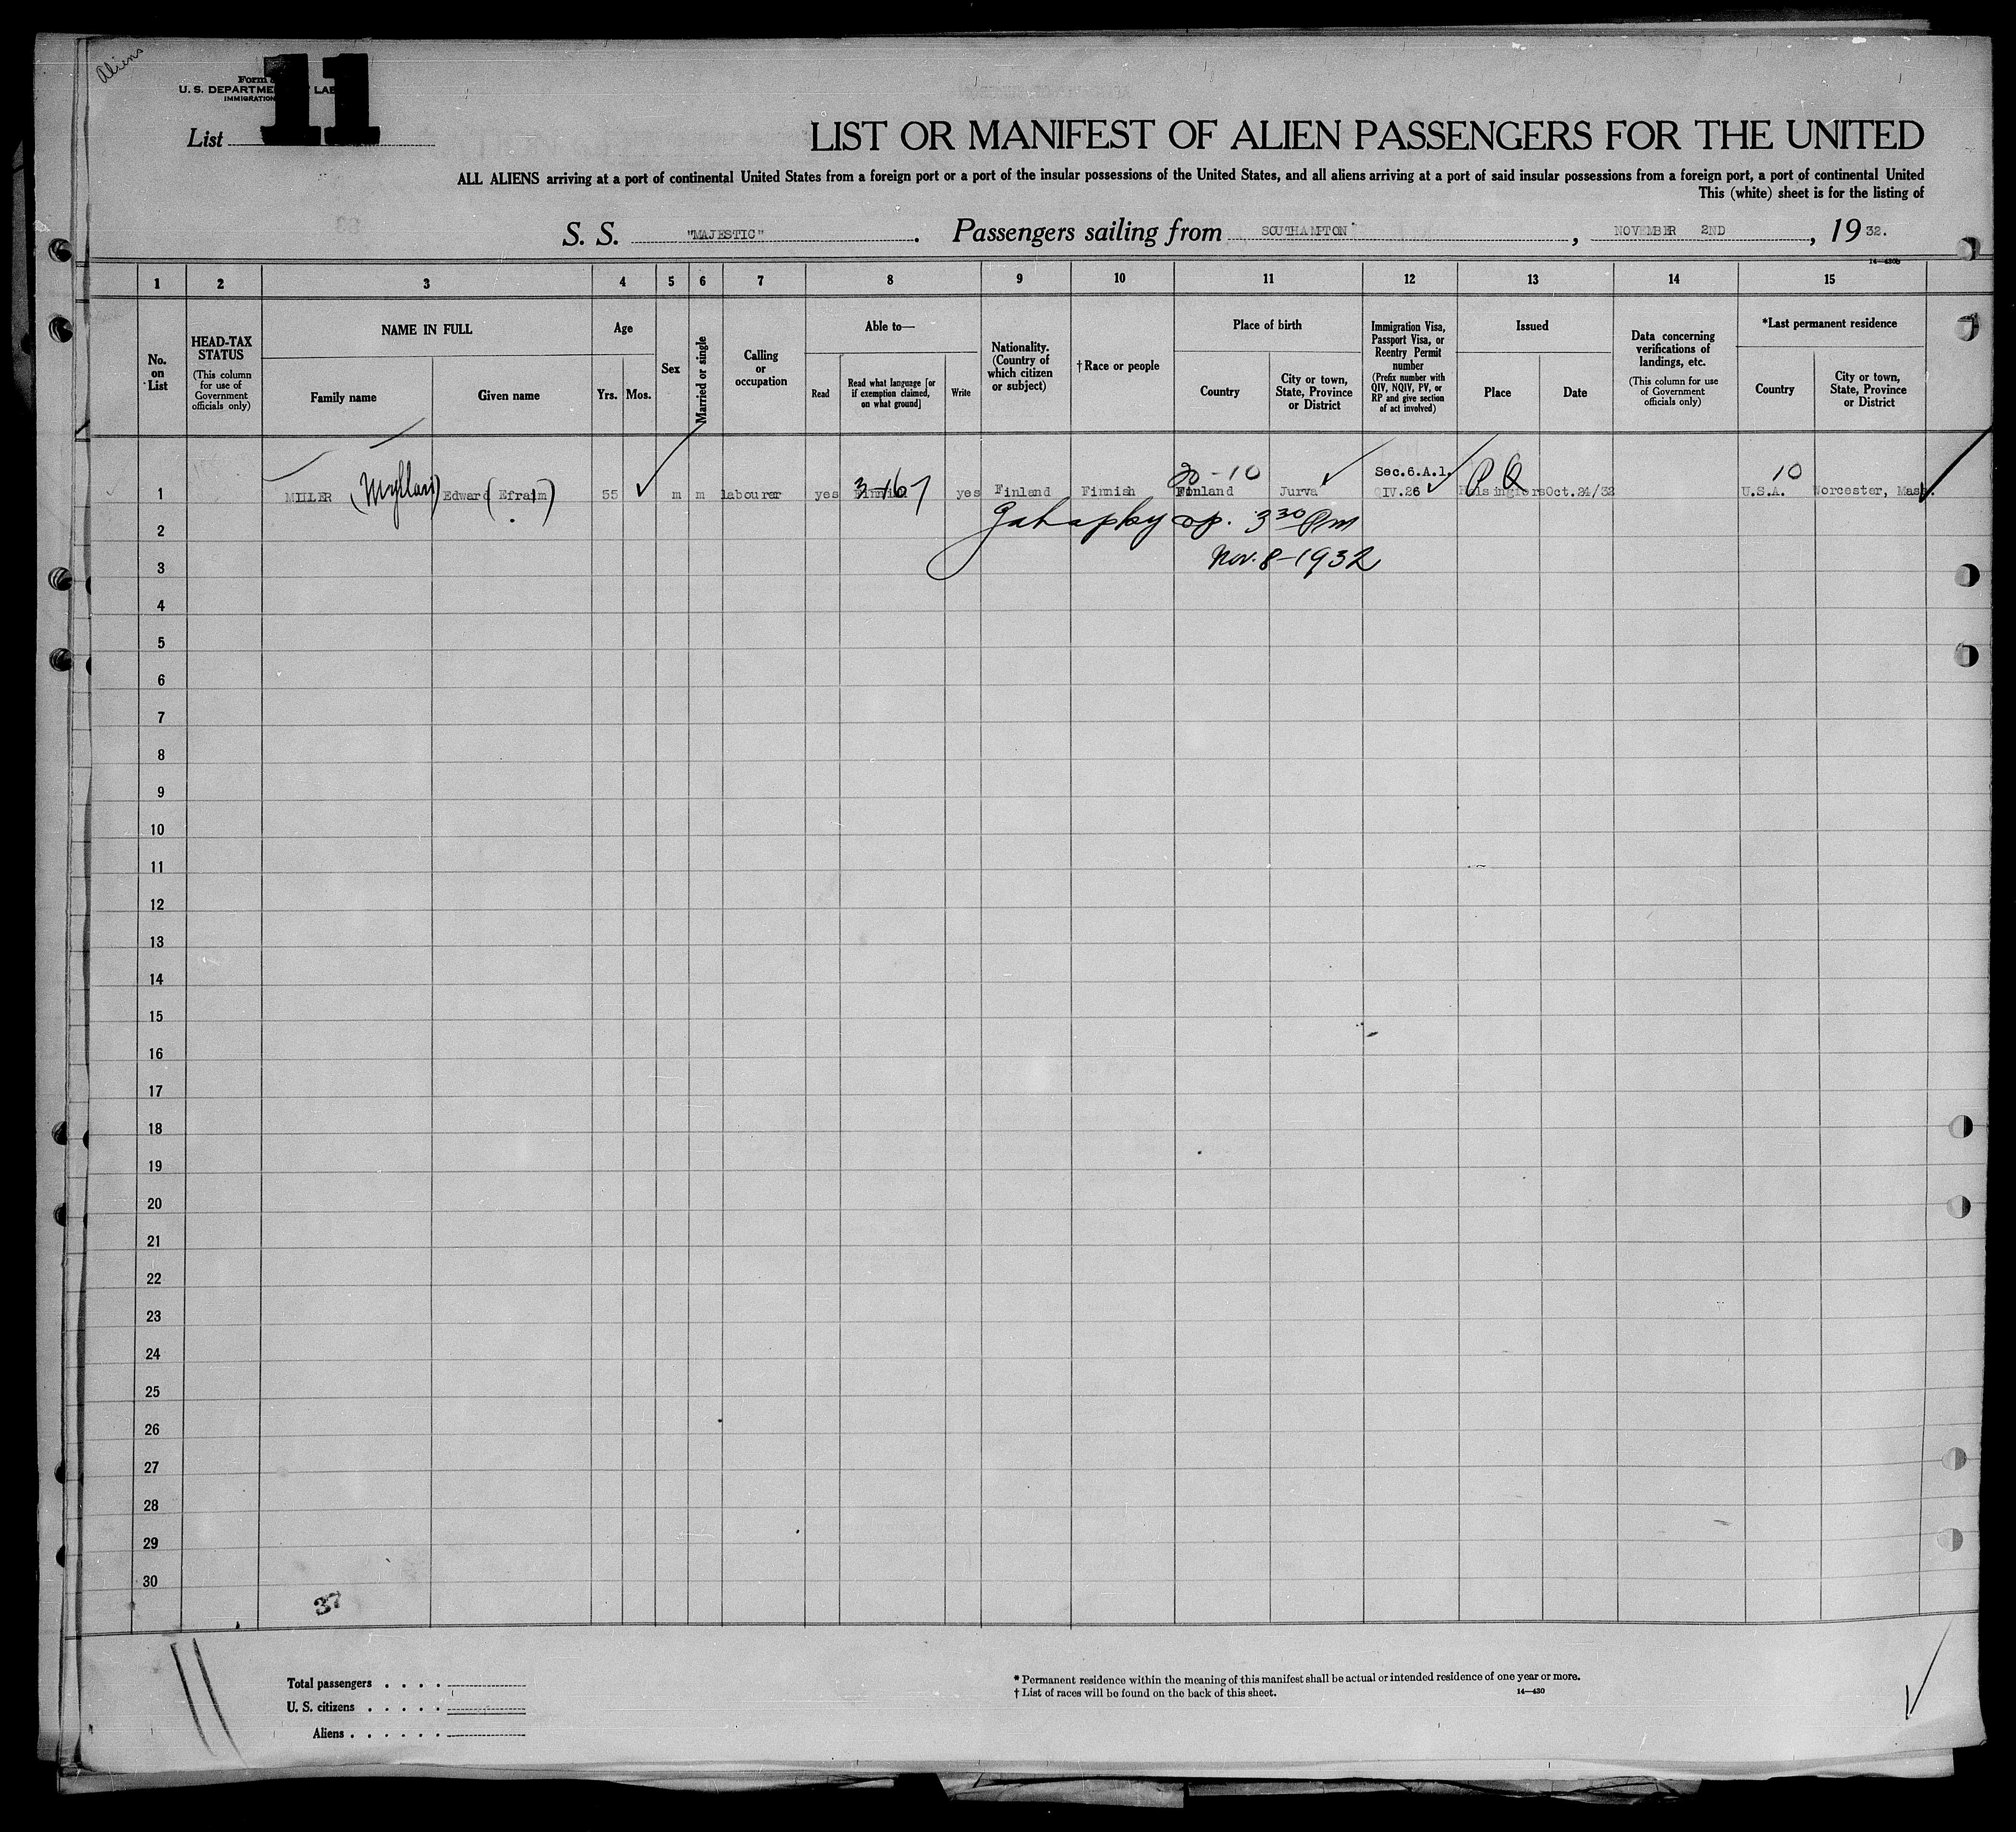 Aliens
Form
U. S. DEPARTME LAB
IMMIGRATION
11
List
LIST OR MANIFEST OF ALIEN PASSENGERS FOR THE UNITED
ALL ALIENS arriving at a port of continental United States from a foreign port or a port of the insular possessions of the United States, and all aliens arriving at a port of said insular possessions from a foreign port, a port of continental United
This (white) sheet is for the listing of
S. S. "MAJESTIC". Passengers sailing from SOUTHAMPTON, NOVEMBER 2ND, 1932.
14—430b
1 2 3 4 5 6 7 8 9 10 11 12 13 14 15
No. on List
HEAD-TAX STATUS (This column for use of Government officials only)
NAME IN FULL
Family name Given name
Age
Yrs. Mos.
Sex
Married or single
Calling or occupation
Able to—
Read Read what language [or if exemption claimed, on what ground] Write
Nationality. (Country of which citizen or subject)
† Race or people
Place of birth
Country City or town, State, Province or District
Immigration Visa, Passport Visa, or Reentry Permit number (Prefix number with QIV, NQIV, PV, or RP and give section of act involved)
Issued
Place Date
Data concerning verifications of landings, etc. (This column for use of Government officials only)
*Last permanent residence
Country City or town, State, Province or District
20-10 Sec.6.A.1. P Q 10
1 MILLER Edward (Efraim) 55 m m labourer yes Finnish yes Finland Finnish Finland Jurva QIV.26 Helsingfors Oct.24/32 U.S.A. Worcester, Mass.
3-167
2 3 30 Pm
3 Nov. 8-1932
4
5
6
7
8
9
10
11
12
13
14
15
16
17
18
19
20
21
22
23
24
25
26
27
28
29
30
37
Total passengers . . . .
U. S. citizens . . . . .
Aliens . . . . . .
* Permanent residence within the meaning of this manifest shall be actual or intended residence of one year or more.
† List of races will be found on the back of this sheet. 14—430